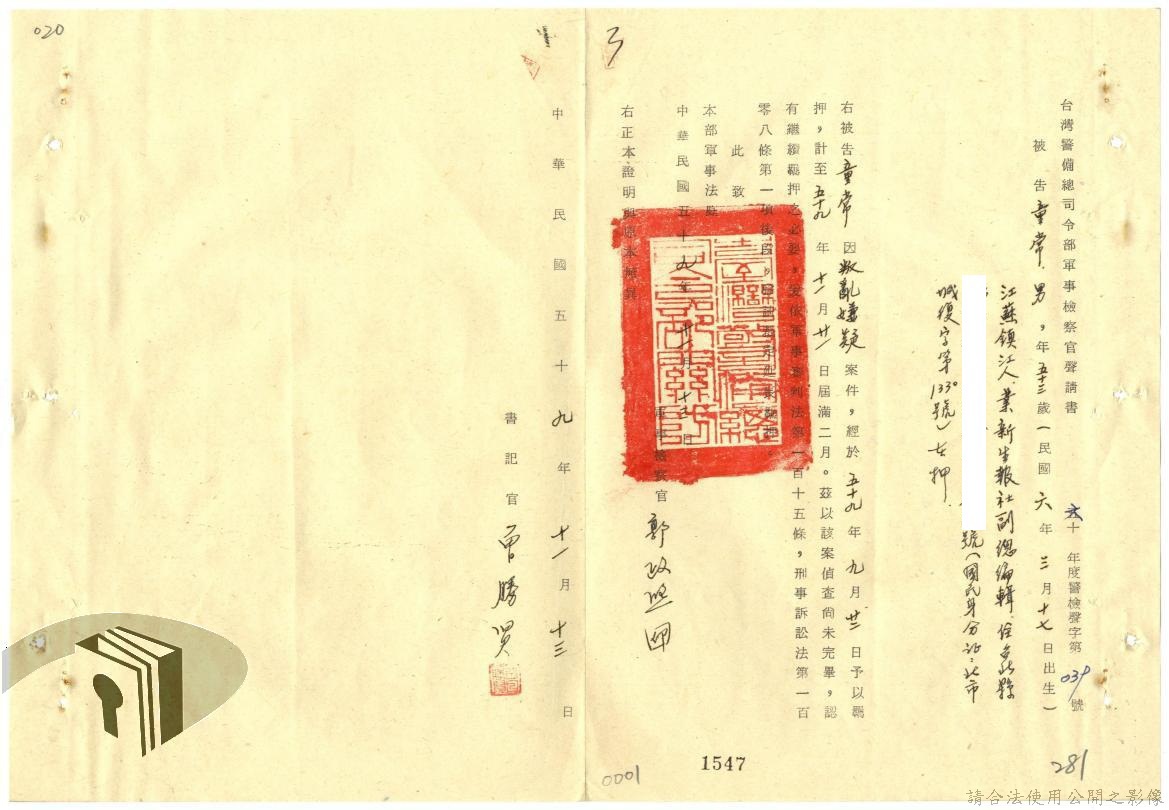 020
台灣警備總司令部軍事檢察官聲請書
六十年度警檢聲字第039號
被告童常,男,年五十三歲(民國六年三月十七日出生)
江蘇鎮江人,業新生報社副總編輯,住台北縣
號(國民身分證:北市
城復字第1330號)在押.
右被告童常因叛亂嫌疑案件,經於五十九年九月廿二日予以羈
押,計至五十九年十一月廿一日屆滿二月。茲以該案偵查尚未完畢,認
有繼續羈押之必要,爰依軍事審判法第一百十五條,刑事訴訟法第一百
零八條第一項後段,聲請裁定延長羈押。
此致
本部軍事法庭
中華民國五十九年十一月十三日
軍事檢察官 郭政熙
右正本證明與原本無異
中華民國五十九年十一月十三日
書記官 曾勝
0001
1547
281
請合法使用公開之影像